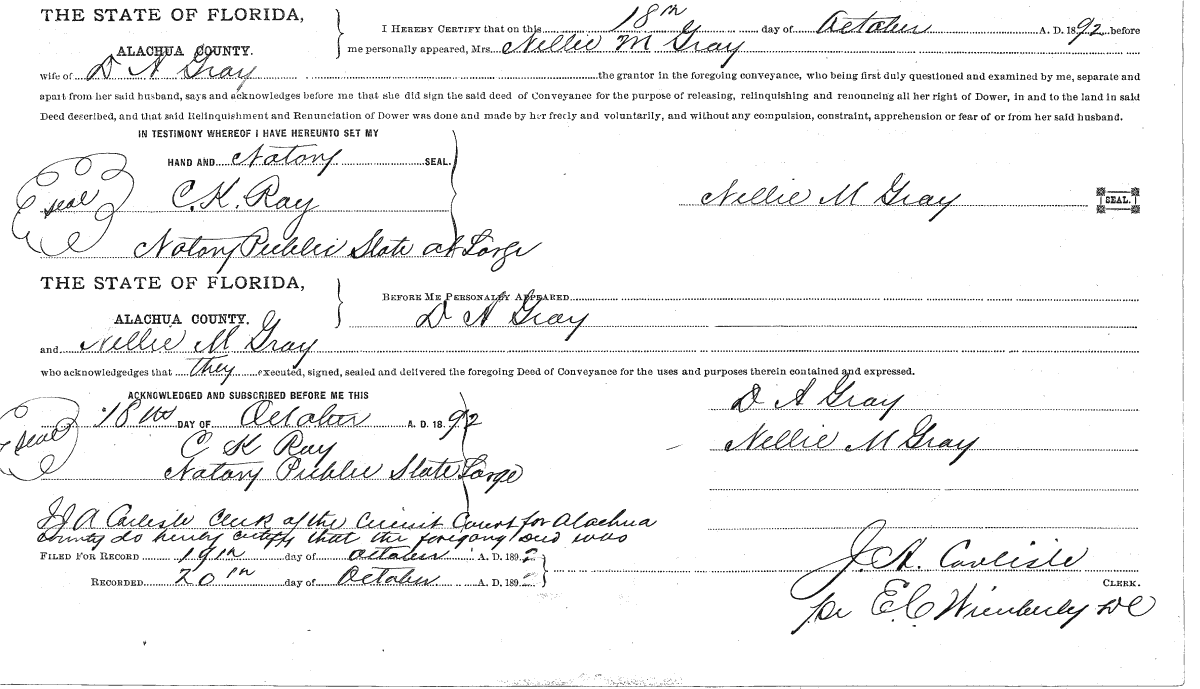 THE STATE OF FLORIDA,
I HEREBY CERTIFY that on this 18th day of October A. D. 1892 before
ALACHUA COUNTY.
me personally appeared, Mrs. Nellie M Gray
wife of D A Gray the grantor in the foregoing conveyance, who being first duly questioned and examined by me, separate and
apart from her said husband, says and acknowledges before me that she did sign the said deed of Conveyance for the purpose of releasing, relinquishing and renouncing all her right of Dower, in and to the land in said
Deed described, and that said Relinquishment and Renunciation of Dower was done and made by her freely and voluntarily, and without any compulsion, constraint, apprehension or fear of or from her said husband.
IN TESTIMONY WHEREOF I HAVE HEREUNTO SET MY
HAND AND Notary SEAL.
seal C. K. Ray
Nellie M Gray SEAL.
Notary Public State at Large
THE STATE OF FLORIDA,
BEFORE ME PERSONALLY APPEARED
ALACHUA COUNTY.
D A Gray
and Nellie M Gray
who acknowledgedges that they executed, signed, sealed and delivered the foregoing Deed of Conveyance for the uses and purposes therein contained and expressed.
ACKNOWLEDGED AND SUBSCRIBED BEFORE ME THIS
D A Gray
seal 18th DAY OF October A. D. 1892
C K Ray
Nellie M Gray
Notary Public State Large
I J A Carlisle Clerk of the Circuit Court for Alachua
County do hereby certify that the foregoing deed was
FILED FOR RECORD 19th day of October A. D. 1892
J. A. Carlisle
RECORDED 20th day of October A. D. 1892
CLERK.
per E C Wimberly DC